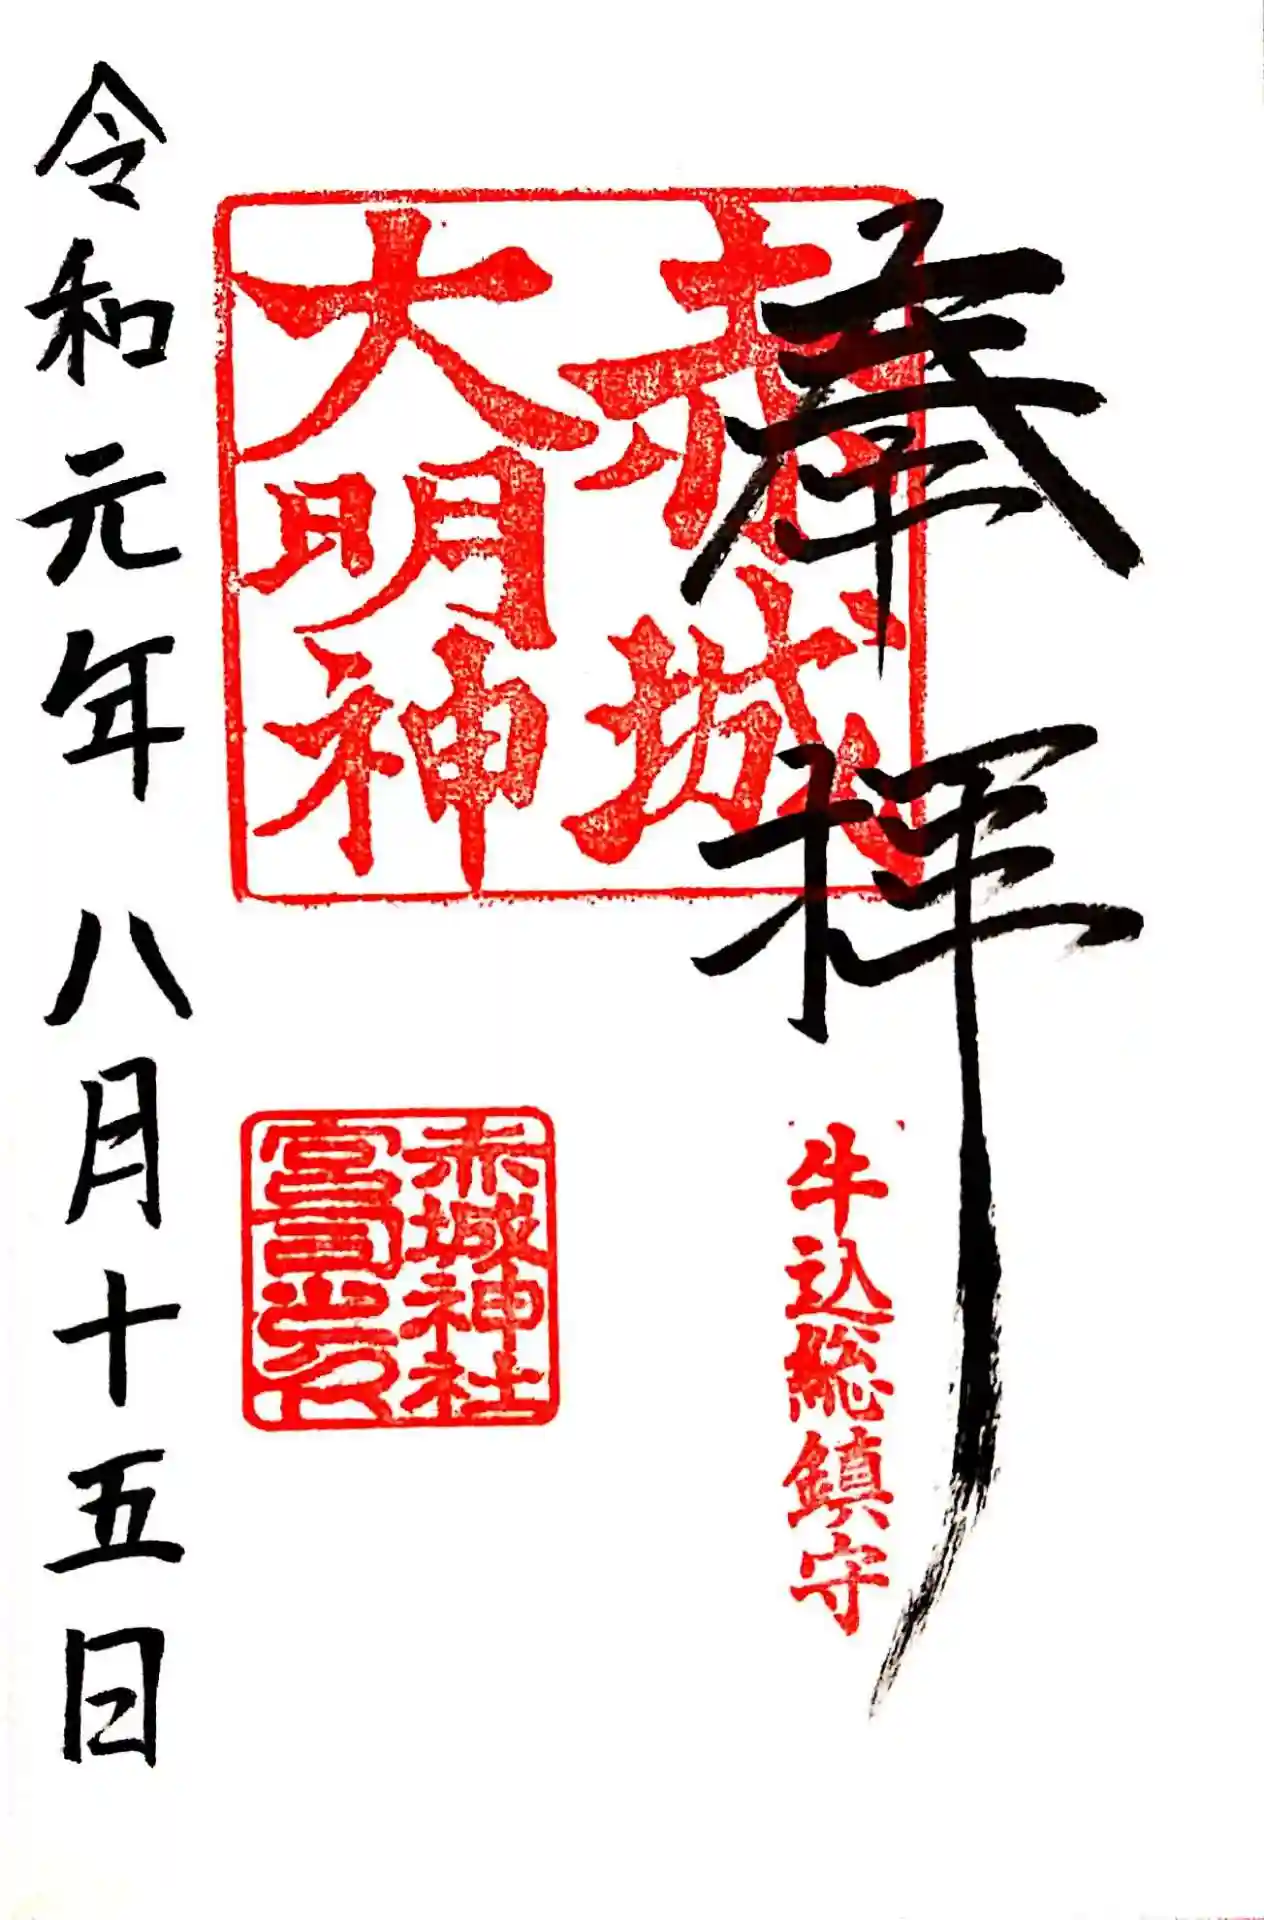 奉拝
牛込総鎮守
赤城
大明神
赤城神社
宮司之印
令和元年 八月十五日